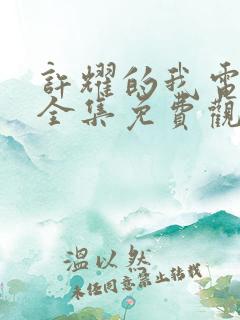 許耀的我電
全集免費觀
溫以然
未经同意禁止转载